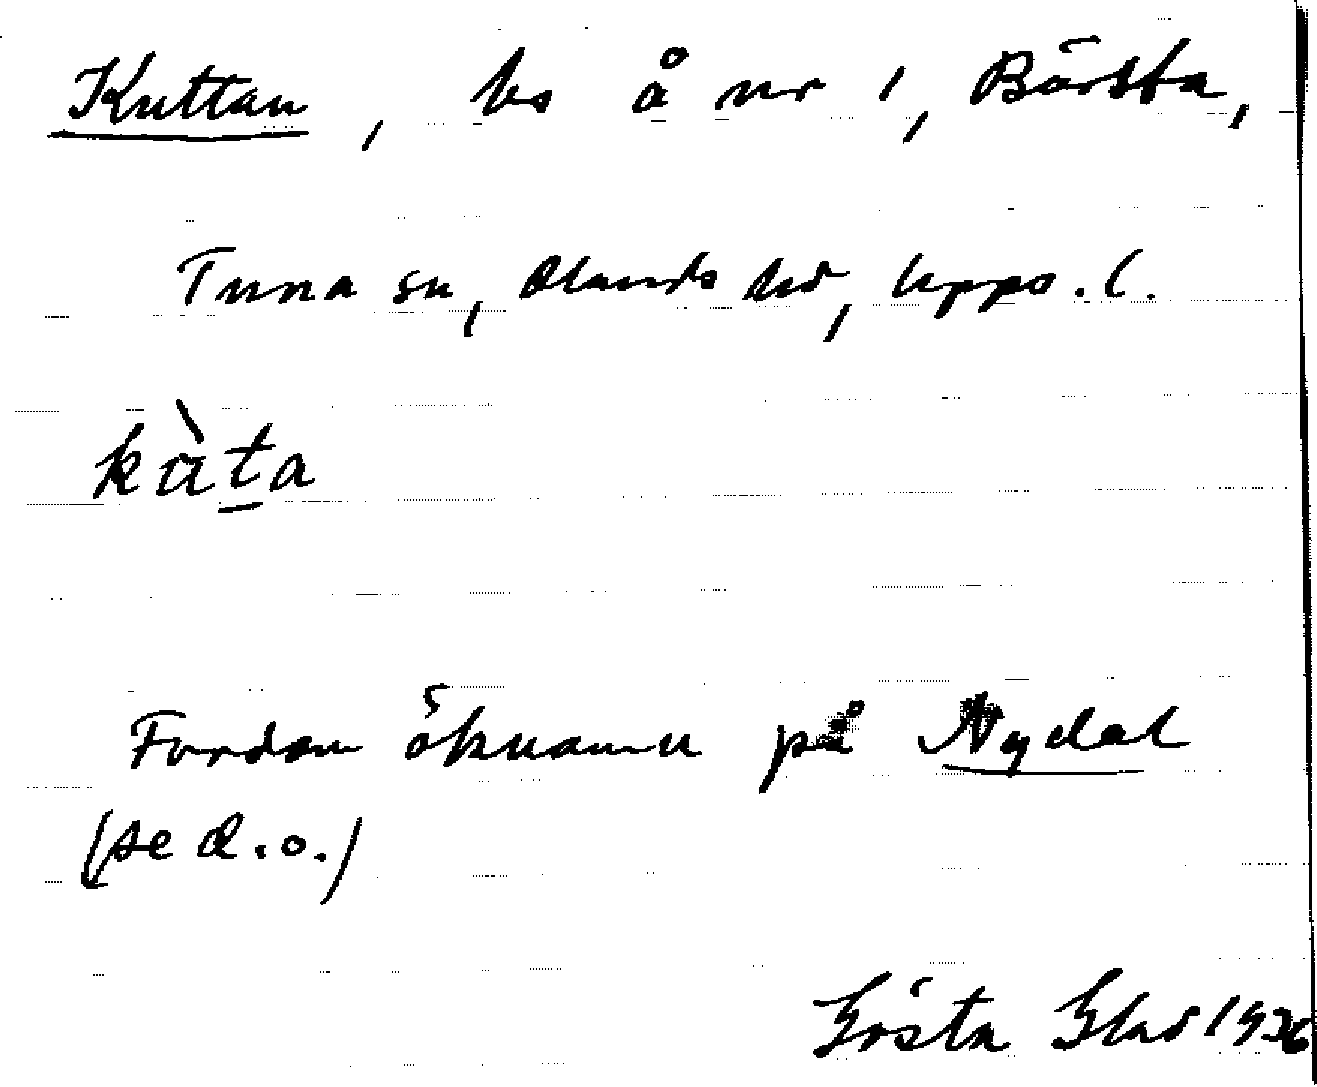 Kuttan, bs å nr 1, Börsta,
Tuna sn, Olands hd, Upps. l.
kàta
Fordom öknamn på Nydal
(se d.o.)
Gösta Blad 1936